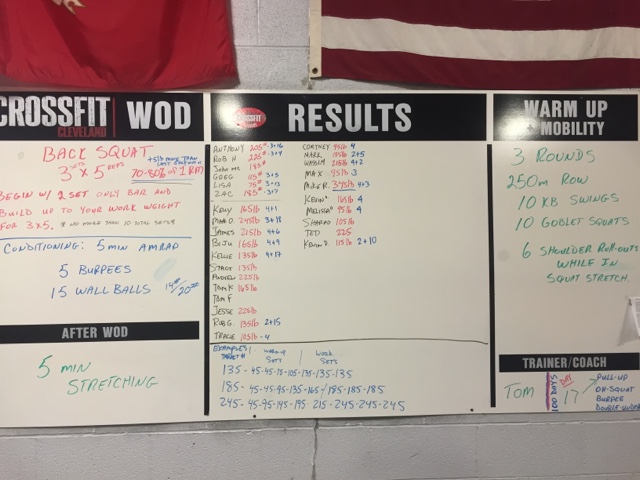 CROSSFIT
CLEVELAND
WOD
BACK SQUAT
3 x 5 REPS 70-80% of 1 RM
BEGIN W/ 2 SET ONLY BAR AND
BUILD UP TO YOUR WORK WEIGHT
FOR 3x5. * NO MORE THAN 10 TOTAL SETS
CONDITIONING: 5 MIN AMRAP
5 BURPEES
15 WALL BALLS 14#/20#
AFTER WOD
5 MIN
STRETCHING
CROSSFIT
RESULTS
ANTHONY 205# 3+16
ROB H 225# 3+4
JOHN 185#
GREG 115# 3+5
LISA 75# 3+13
ZAC 185# 3+7
KELLY 165lb 4+1
245lb 3+18
JAMES 215lb 4+6
BEJU 165lb 4+9
KELLIE 135lb 4+17
STACY 135lb
ANDREW 225lb
TOM K 165lb
TOM F
JESSE 225lb
ROB G. 135lb 2+15
TRACIE 105lb - 4
CORTNEY 95lb 4
MARK 195lb 2+5
255lb 4+2
MAX 95lb 3
MIKE R. 345lb 4+3
KEVIN* 165lb 4
MELISSA* 95lb 4
SHARAD 105lb
TED 225
KEVIN D. 115lb 2+10
EXAMPLES WARM-UP SETS WORK SETS
135 - 45-45-95-105-135-135-135
185 - 45-45-95-135-165-/185-185-185
245 - 45-95-145-195-215-245-245-245
WARM UP
MOBILITY
3 ROUNDS
250m ROW
10 KB SWINGS
10 GOBLET SQUATS
6 SHOULDER ROLL-OUTS
WHILE IN
SQUAT STRETCH
TRAINER/COACH
TOM
100 DAYS
DAY
17
PULL-UP
OH-SQUAT
BURPEE
DOUBLE-UNDER